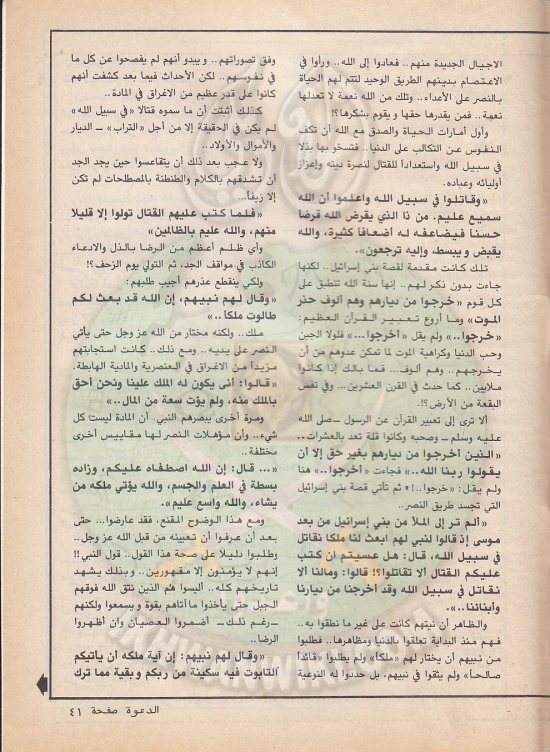 الاجيال الجديدة منهم.. فعادوا إلى الله.. ورأوا في
الاعتصام بدينهم الطريق الوحيد لتتم لهم الحياة
بالنصر على الأعداء.. وتلك من الله نعمة لا تعدلها
نعمة.. فمن يقدرها حقها و يقوم بشكرها؟!
وأول أمارات الحياة والصدق مع الله أن تكف
النفوس عن التكالب على الدنيا.. فتسخو بها بذلا
في سبيل الله واستعداداً للقتال لنصرة دينه وإعزاز
أوليائه وعباده.
«وقاتلوا في سبيل الله واعلموا أن الله
سميع عليم، من ذا الذي يقرض الله قرضا
حسنا فيضاعفه له أضعافا كثيرة، والله
يقبض و يبسط، وإليه ترجعون».
تلك كانت مقدمة لقصة بني إسرائيل.. لكنها
جاءت بدون ذكر لهم.. إنها سنة الله تنطبق على
كل قوم «خرجوا من ديارهم وهم ألوف حذر
الموت» وما أروع تعبير القرآن العظيم:
«خرجوا..» ولم يقل «أخرجوا...» فلولا الجبن
وحب الدنيا وكراهية الموت لما تمكن عدوهم من أن
يخرجهم.. وهم ألوف... فما بالك إذا كانوا
ملايين.. كما حدث في القرن العشرين... وفي نفس
البقعة من الأرض؟!.
ألا ترى إلى تعبير القرآن عن الرسول ــ صلى الله
عليه وسلم ــ وصحبه وكانوا قلة تعد بالعشرات..
«الذين أخرجوا من ديارهم بغير حق إلا أن
يقولوا ربنا الله..» فجاءت «أخرجوا..» هنا
ولم يقل: «خرجوا..!» ثم تأتي قصة بني إسرائيل
التي تجسد طريق النصر..
«ألم تر إلى الملأ من بني إسرائيل من بعد
موسى إذ قالوا لنبي لهم ابعث لنا ملكا نقاتل
في سبيل الله، قال: هل عسيتم أن كتب
عليكم القتال ألا تقاتلوا؟! قالوا: ومالنا ألا
نقاتل في سبيل الله وقد أخرجنا من ديارنا
وأبنائنا..».
والظاهر أن نيتهم كانت على غير ما نطقوا به..
فهم منذ البداية تعلقوا بالدنيا ومظاهرها.. فطلبوا
من نبيهم أن يختار لهم «ملكا» ولم يطلبوا «قائداً
صالحاً» ولم يثقوا في نبيهم، بل حددوا له النوعية
وفق تصوراتهم.. و يبدو أنهم لم يفصحوا عن كل ما
في نفوسهم.. لكن الأحداث فيما بعد كشفت أنهم
كانوا على قدر عظيم من الاغراق في المادة..
كذلك أثبتت أن ما سموه قتالا «في سبيل الله»
لم يكن في الحقيقة إلا من أجل «التراب» ــ الديار
والأموال والأولاد..
ولا عجب بعد ذلك أن يتقاعسوا حين يجد الجد
أن تشدقهم بالكلام والطنطنة بالمصطلحات لم تكن
إلا زيفاً...
«فلما كتب عليهم القتال تولوا إلا قليلا
منهم، والله عليم بالظالمين»
وأي ظلم أعظم من الرضا بالذل والادعاء
الكاذب في مواقف الجد، ثم التولي يوم الزحف؟!
ولكي ينقطع عذرهم أجيب طلبهم:
«وقال لهم نبيهم، إن الله قد بعث لكم
طالوت ملكاً..»
ملك.. ولكنه مختار من الله عز وجل حتى يأتي
النصر على يديه.. ومع ذلك.. كانت استجابتهم
مزيداً من الاغراق في العنصرية والمادية الهابطة.
«قالوا: أنى يكون له الملك علينا ونحن أحق
بالملك منه، ولم يؤت سعة من المال..»
ومرة أخرى يبصرهم النبي. أن المادة ليست كل
شيء.. وأن مؤهلات النصر لها مقاييس أخرى
مختلفة..
«... قال: إن الله اصطفاه عليكم، وزاده
بسطة في العلم والجسم، والله يؤتي ملكه من
يشاء، والله واسع عليم».
ومع هذا الوضوح المقنع، فقد عارضوا... حتى
بعد أن عرفوا أن تعيينه من قبل الله عز وجل..
وطلبوا دليلا على صحة هذا القول.. قول النبي!!
إنهم لا يؤمنون إلا مقهورين.. و بذلك يشهد
تاريخهم كله.. أليسوا هم الذين نتق الله فوقهم
الجبل حتى يأخذوا ما أتاهم بقوة و يسمعوا ولكنهم
ــ رغم ذلك ــ أضمروا العصيان وان أظهروا
الرضا..
«وقال لهم نبيهم: إن آية ملكه أن يأتيكم
التابوت فيه سكينة من ربكم وبقية مما ترك
الدعوة صفحة ٤١